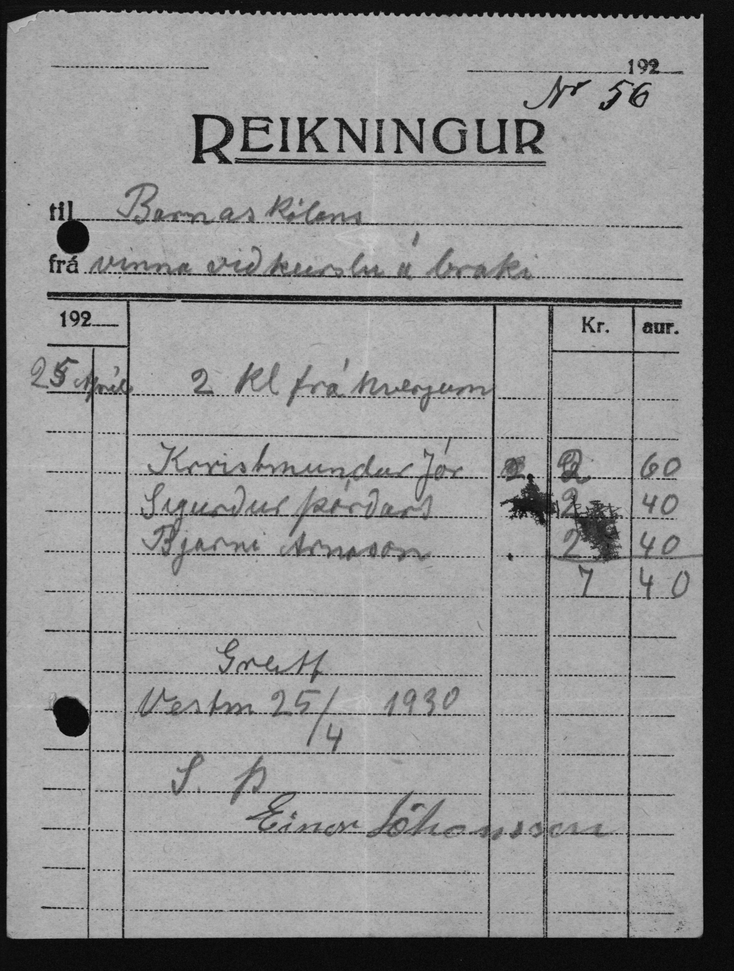 192
Nr 56
REIKNINGUR
til Barnaskólans
frá vinna við keirslu á braki
192 Kr. aur.
25 Apríl 2 kl frá hverjum
Kristmundur Jór 2 60
Sigurður Þórðars 2 40
Bjarni Arnason 2 40
7 40
Greitt
Vestm 25/4 1930
S. Þ
Einar Jóhannsson